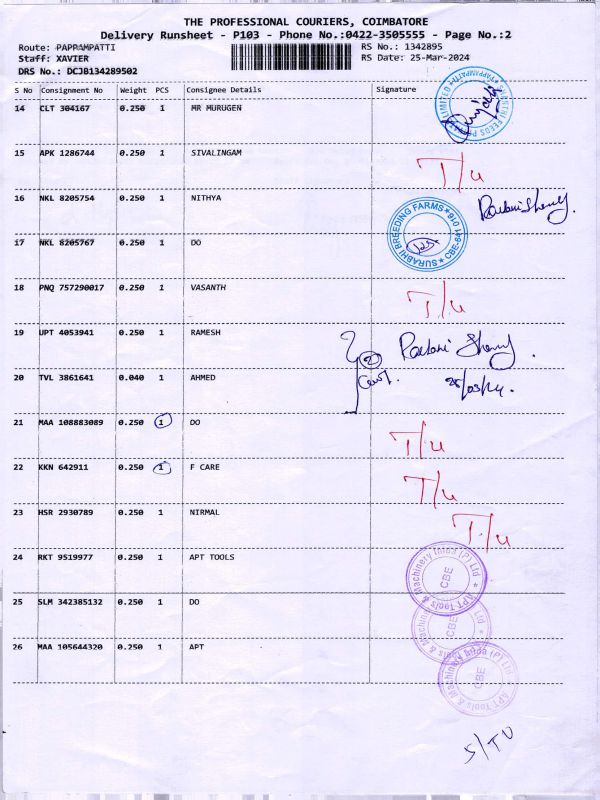 THE PROFESSIONAL COURIERS, COIMBATORE
Delivery Runsheet - P103 - Phone No.:0422-3505555 - Page No.:2
Route: PAPPAMPATTI RS No.: 1342895
Staff: XAVIER RS Date: 25-Mar-2024
DRS No.: DCJB134289502
S No Consignment No Weight PCS Consignee Details Signature
14 CLT 304167 0.250 1 MR MURUGEN
15 APK 1286744 0.250 1 SIVALINGAM T/u
16 NKL 8205754 0.250 1 NITHYA
SURABHI BREEDING FARMS * CBE-641 016 *
17 NKL 8205767 0.250 1 DO
18 PNQ 757290017 0.250 1 VASANTH T/u
19 UPT 4053941 0.250 1 RAMESH
20 TVL 3861641 0.040 1 AHMED 2 25/03/24.
21 MAA 108883089 0.250 1 DO T/u
22 KKN 642911 0.250 1 F CARE T/u
23 HSR 2930789 0.250 1 NIRMAL T/u
24 RKT 9519977 0.250 1 APT TOOLS
APT Tools & Machinery India (P) Ltd * CBE
25 SLM 342385132 0.250 1 DO
26 MAA 105644320 0.250 1 APT
APT Tools & Machinery India (P) Ltd * CBE
5/TU